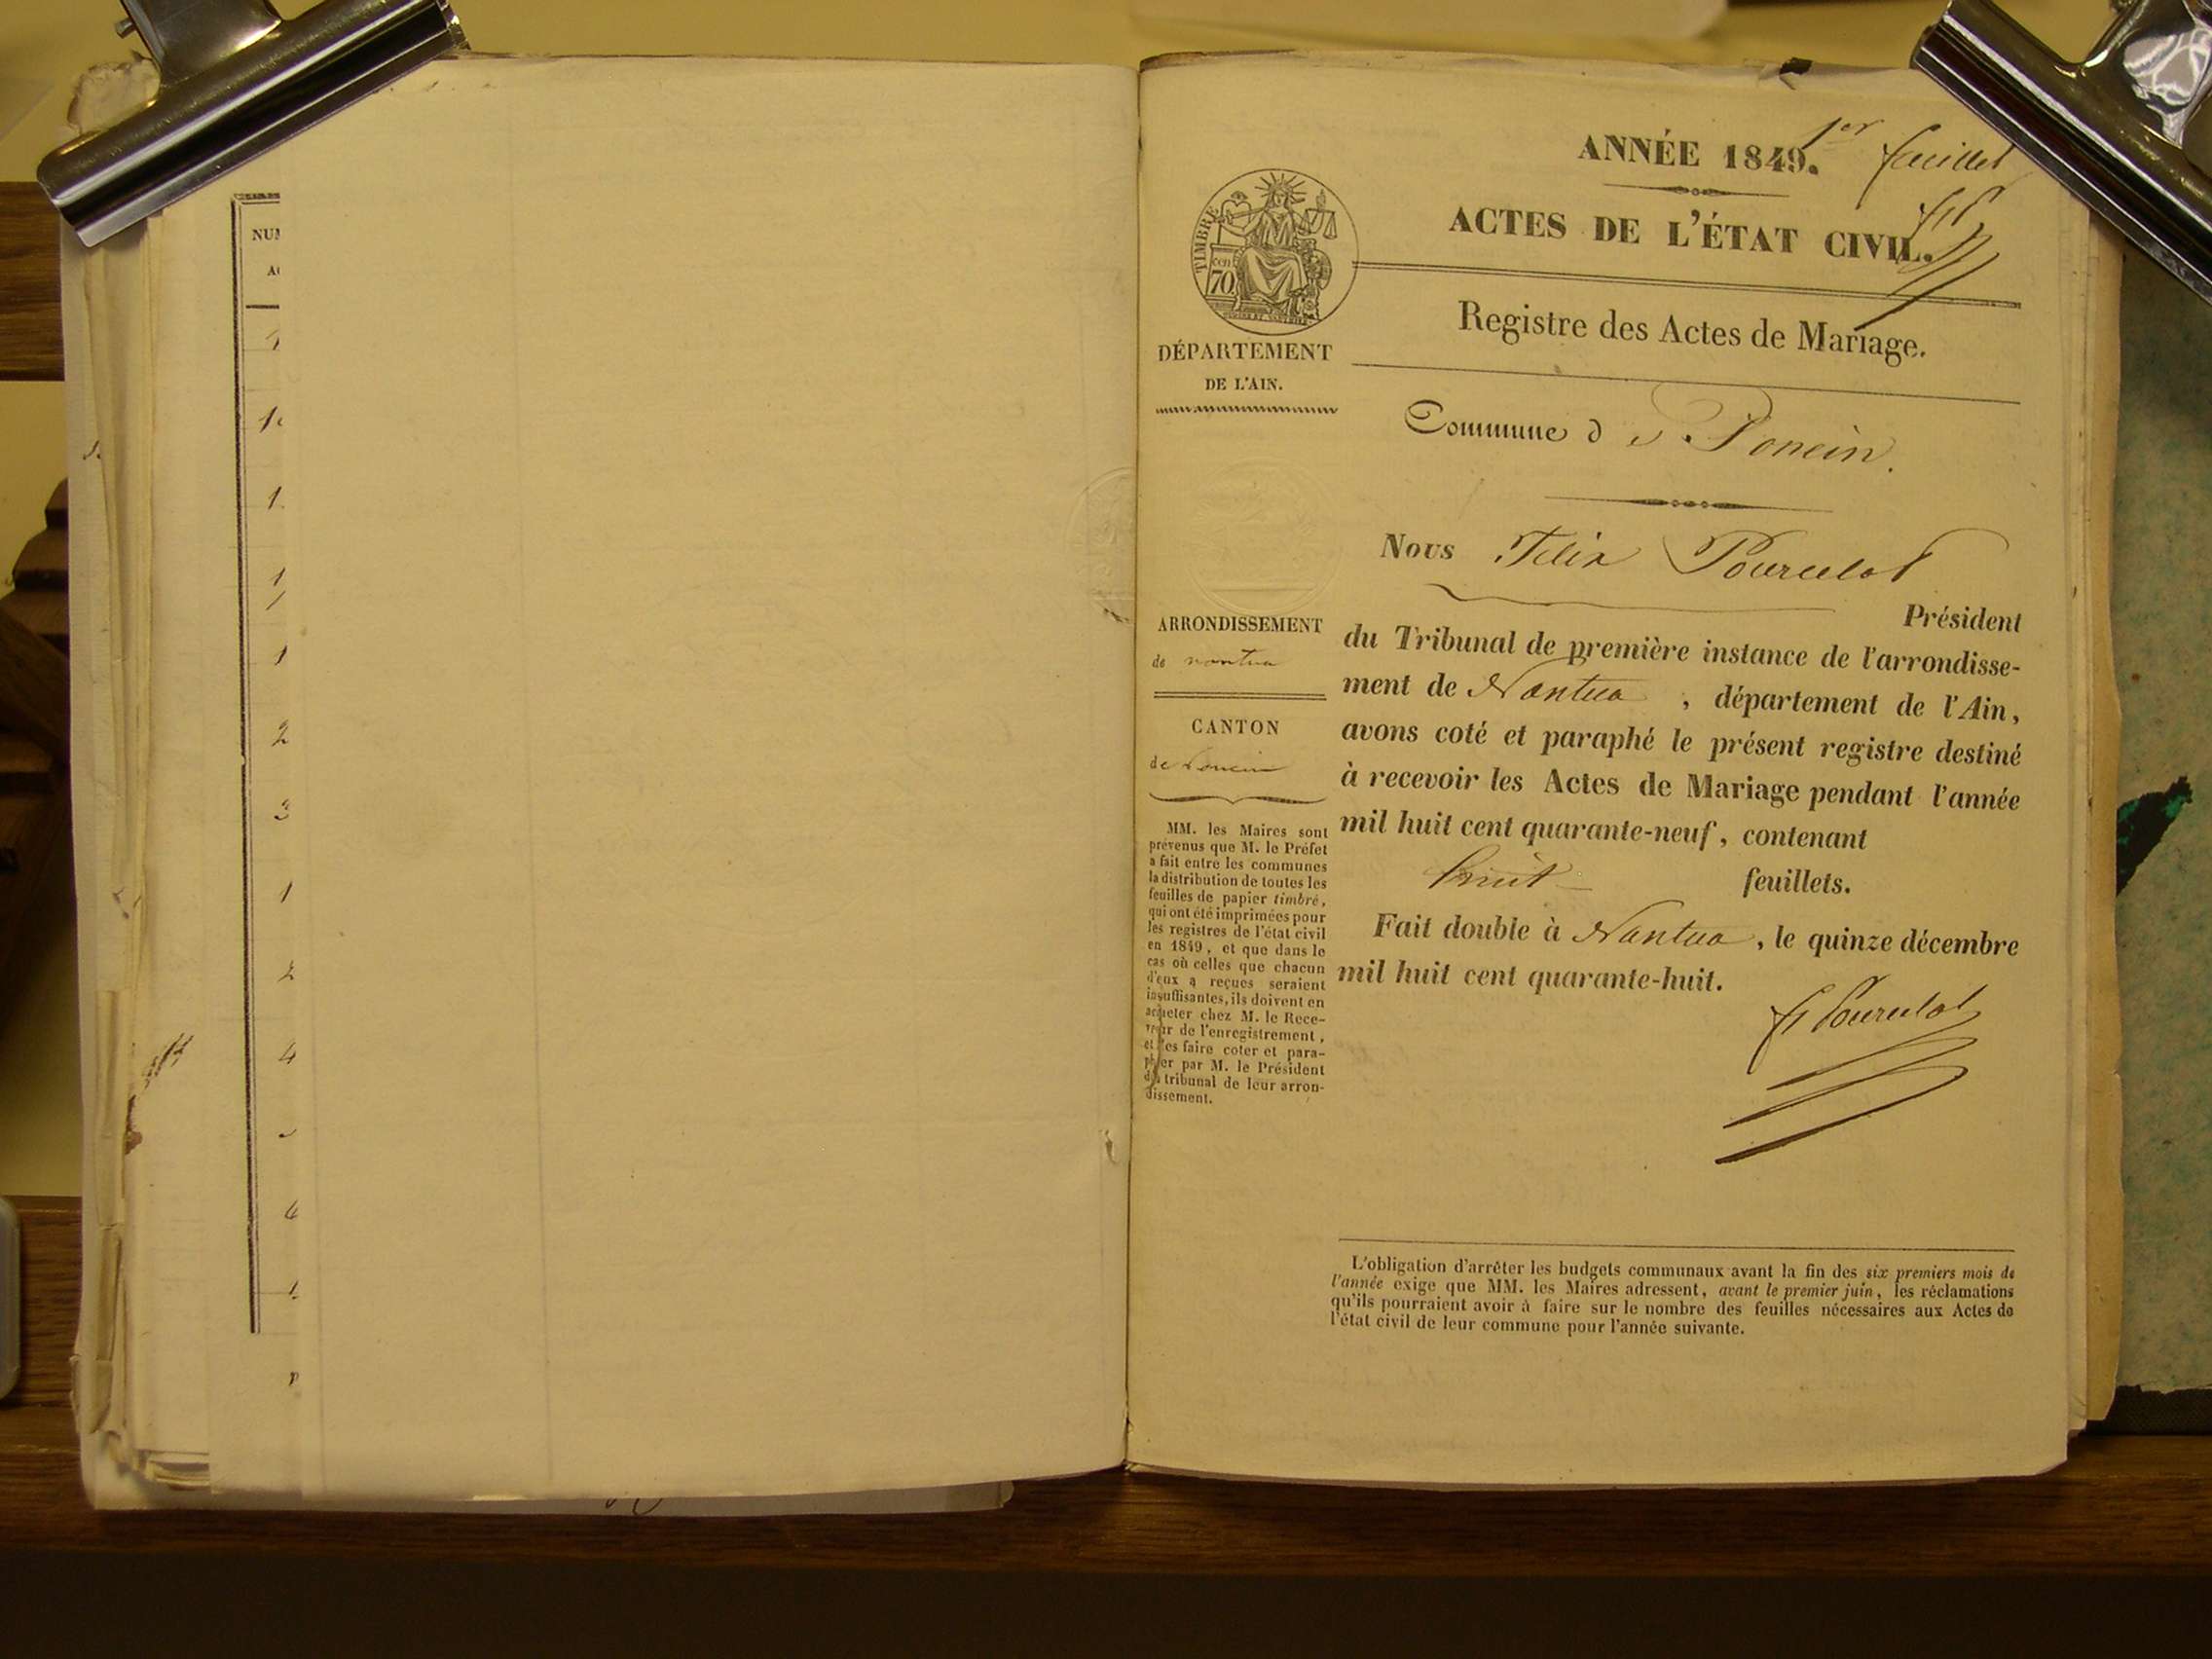 NUM
1er feuillet
ANNÉE 1849.
ACTES DE L'ÉTAT CIVIL.
Registre des Actes de Mariage.
TIMBRE
cen
70
DÉPARTEMENT
DE L'AIN.
Commune de Poncin.
Nous Félix Pourcelot
Président
du Tribunal de première instance de l'arrondisse-
ment de Nantua, département de l'Ain,
avons coté et paraphé le présent registre destiné
à recevoir les Actes de Mariage pendant l'année
mil huit cent quarante-neuf, contenant
huit feuillets.
Fait double à Nantua, le quinze décembre
mil huit cent quarante-huit.
f Pourcelot
ARRONDISSEMENT
de nantua
CANTON
de Poncin
MM. les Maires sont
prévenus que M. le Préfet
a fait entre les communes
la distribution de toutes les
feuilles de papier timbré,
qui ont été imprimées pour
les registres de l'état civil
en 1849, et que dans le
cas où celles que chacun
d'eux a reçues seraient
insuffisantes, ils doivent en
acheter chez M. le Rece-
veur de l'enregistrement,
et les faire coter et para-
pher par M. le Président
du tribunal de leur arron-
dissement.
L'obligation d'arrêter les budgets communaux avant la fin des six premiers mois de
l'année exige que MM. les Maires adressent, avant le premier juin, les réclamations
qu'ils pourraient avoir à faire sur le nombre des feuilles nécessaires aux Actes de
l'état civil de leur commune pour l'année suivante.